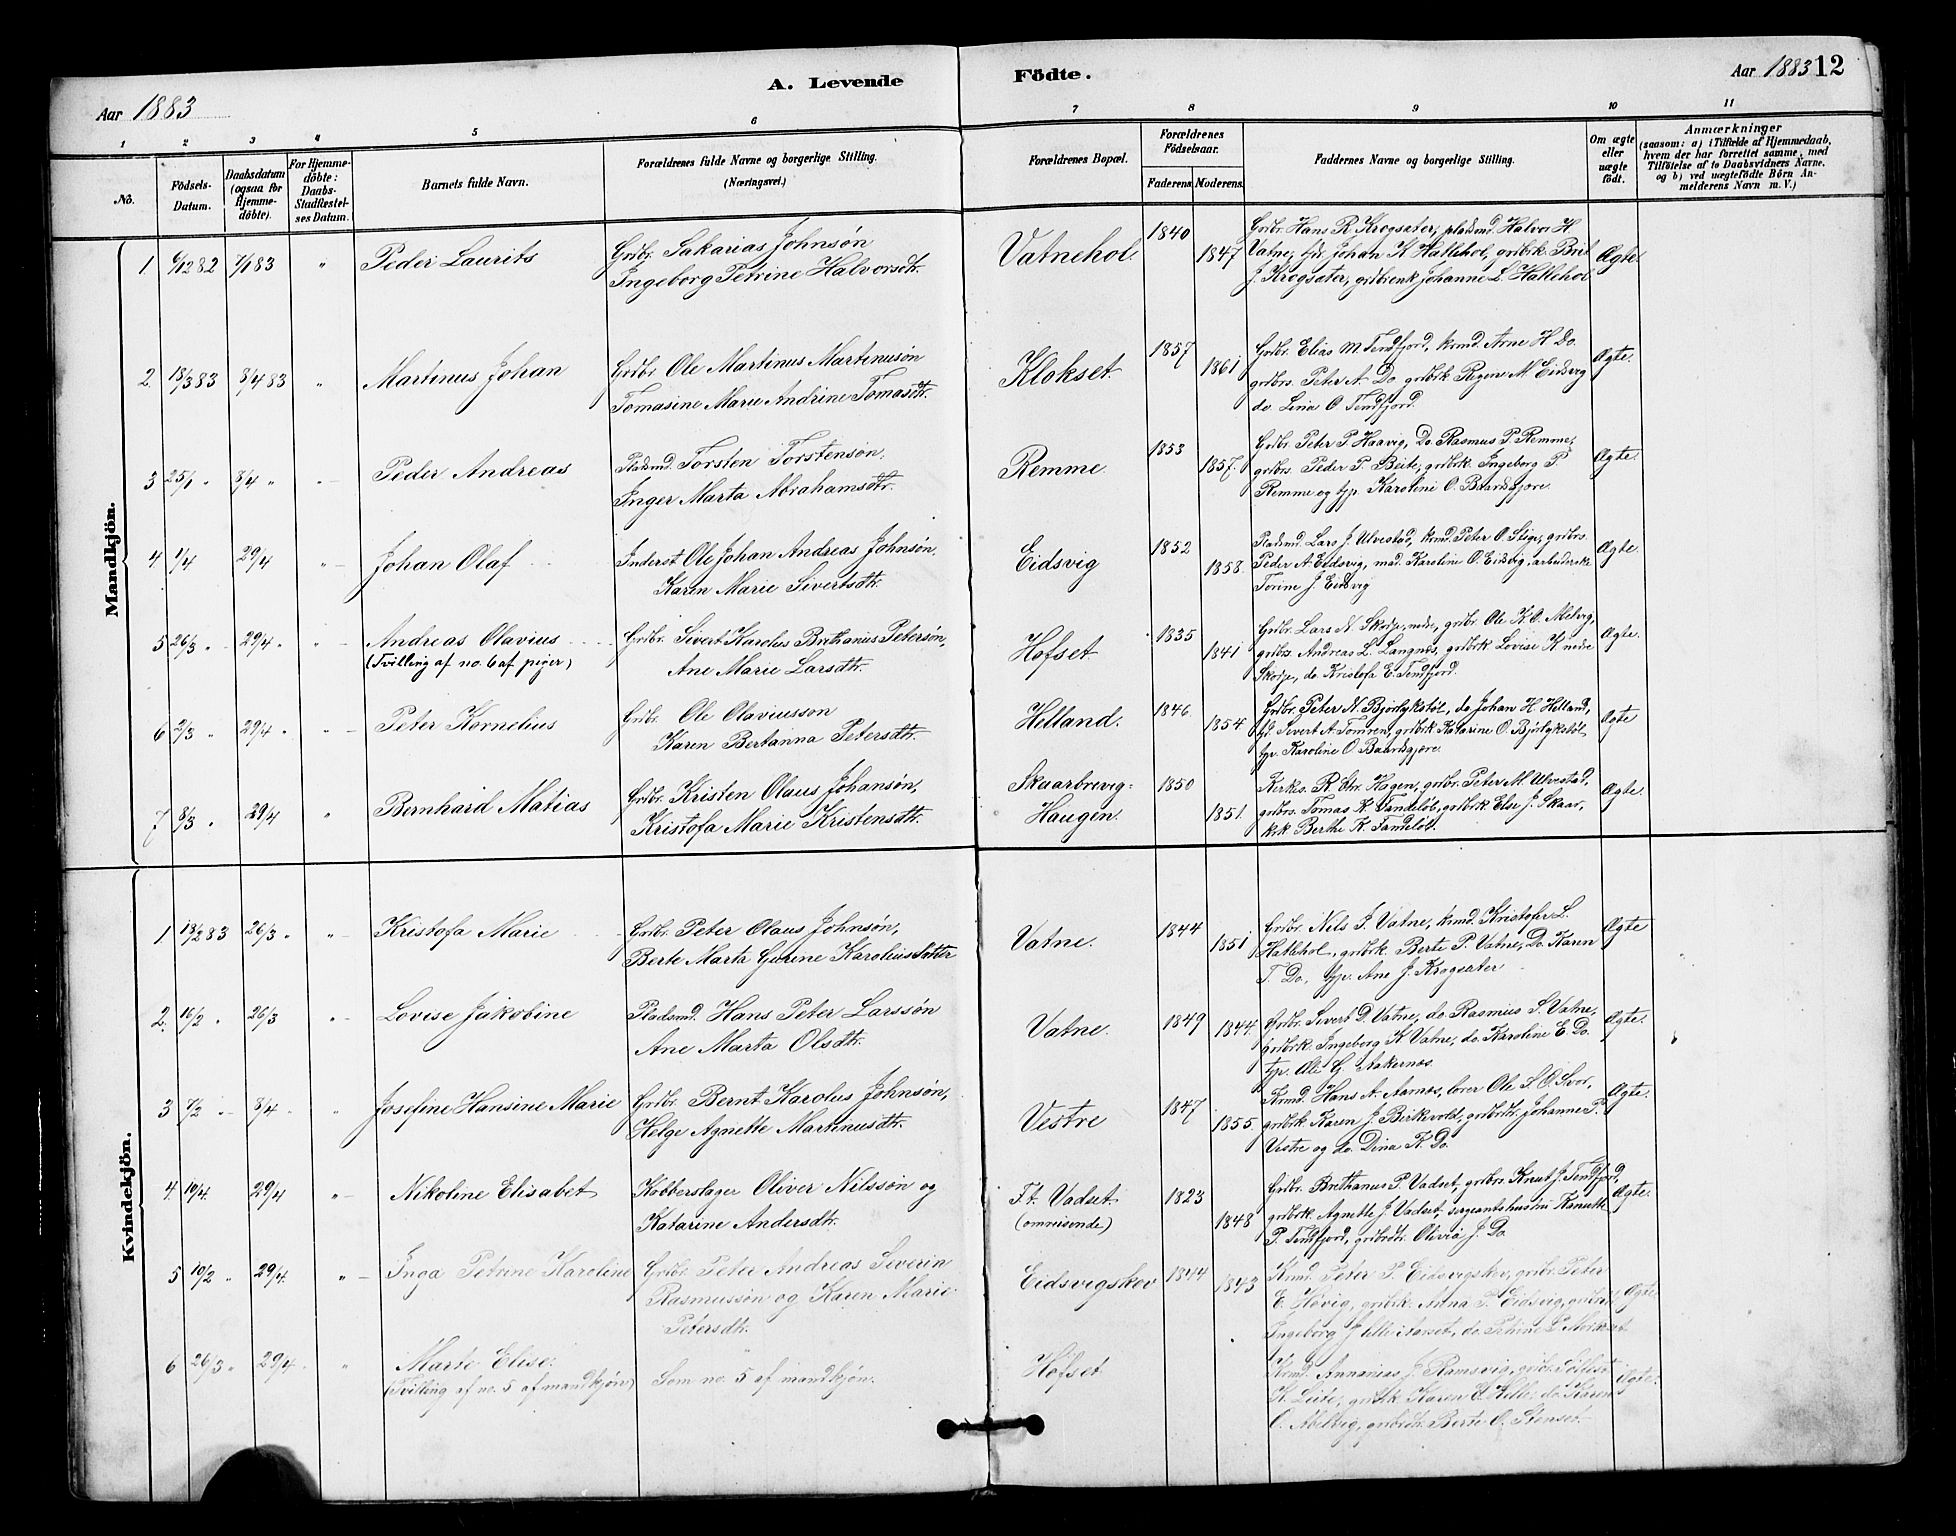 Aar 1883
A. Levende Födte.
Aar 1883 12
1 2 3 4 5 6 7 8 9 10 11
No.
Födsels-Datum.
Daabsdatum (ogsaa for Hjemmedöbte).
For Hjemmedöbte: Daabs-Stadfæstelses Datum.
Barnets fulde Navn.
Forældrenes fulde Navne og borgerlige Stilling.
(Næringsvei.)
Forældrenes Bopæl.
Forældrenes Födselsaar.
Faderens. Moderens.
Faddernes Navne og borgerlige Stilling.
Om ægte eller uægte födt.
Anmærkninger
(saasom: a) i Tilfælde af Hjemmedaab, hvem der har forrettet samme, med Tilföielse af to Daabsvidners Navne, og b) ved uægtefödte Börn Anmelderens Navn m. V.)
Mandkjön.
1 6/12 82 7/1 83 " Peder Laurits
Grdbr. Sakarias Johnsøn
Ingeborg Petrine Halvorsdtr.
Vatnehol 1840 1847
Grdbr. Hans R. Krogsæter, pladsmd. Halvor H.
Vatne, Johan K. Hatlehol, grdbrk. Brit
J. Krogsæter, grdbrenk Johanne L. Hatlehol
Ægte
2. 18/3 83 8/4 83 " Martinus Johan
Grdbr. Ole Martinus Martinusøn
Tomasine Marie Andrine Tomasdtr.
Klokset 1857 1861
Grdbr. Elias M. Tenfjord, krmd. Arne H. Do.
grdbrs. Peter A. Do. grdbrk. Regine M. Eidsvig
do. Lina O. Tenfjord.
Ægte.
3 25/1 " 8/4 " " Peder Andreas
Pladsmd. Torsten Torstensøn,
Inger Marta Abrahamsdtr.
Remme 1853 1857.
Grdbr. Peter P. Haavig, Do. Rasmus P. Remme,
grdbrs. Peder P. Beite, grdbrk. Ingeborg P.
Remme og tjp. Karoline O. Baardsgjære.
Ægte.
4 1/4 29/4 " Johan Olaf
Inderst Ole Johan Andreas Johnsøn,
Karen Marie Sivertsdtr.
Eidsvig 1852 1858.
Pladsmd. Lars J. Ulvestad, krmd. Peter O. Stige, grdbrs.
Peder A. Eidsvig, mad. Karoline O. Eidsvig, arbeiderske
Torine J. Eidsvig
Ægte.
5 26/3 " 29/4 " " Andreas Olavius
(Tvilling af no. 6 af piger)
Grdbr. Sivert Karolus Brethanus Petersøn,
Ane Marie Larsdtr.
Hofset 1835 1841
Grdbr. Lars N. Skodje, nedre, grdbr. Ole K. O. Melvig,
grdbrs. Andreas L. Langnæs, grdbrk. Lovise K. nedre
Skodje, do. Kristofa E. Tenfjord.
Ægte.
6 2/3 " 29/4 " " Peter Kornelius
Grdbr. Ole Olaviusson
Karen Bertanna Petersdtr.
Helland. 1846 1854
Grdbr. Peter N. Bjørlykstøl, do. Johan H. Helland,
Sivert A. Tomren, grdbrk. Katarine O. Bjørlykstøl
tjp. Karoline O. Baardsgjære.
Ægte
7 8/3 " 29/4 " Bernhard Matias
Grdbr. Kristen Olaus Johansøn,
Kristofa Marie Kristensdtr.
Skaarbrevig-
Haugen. 1850 1851.
Kirkes. R. Chr. Hagen, grdbr. Peter M. Ulvestad,
grdbrs. Tomas K. Tandeløt, grdbrk. Else J. Skaar,
krk. Berthe K. Tandeløt.
Ægte.
Kvindekjön.
1 18/2 83 26/3 " " Kristofa Marie
Grdbr. Peter Olaus Johnsøn,
Berte Marta Gurine Karoliusdatter
Vatne. 1844 1851
Grdbr. Nils J. Vatne, krmd. Kristofer L.
Hatlehol, grdbrk. Berte P. Vatne, Do. Karen
T. Do., tjp. Ane J. Krogsæter
Ægte
2. 16/2 " 26/3 " Lovise Jakobine
Pladsmd. Hans Peter Larssøn
Ane Marta Olsdtr.
Vatne. 1849 1844.
Grdbr. Sivert D. Vatne, do. Rasmus S. Vatne,
grdbrk. Ingeborg K. Vatne, do. Karoline E. Do.
tjp. Ole G. Aakernæs.
Ægte.
3 7/2 " 8/4 " " Josefine Hansine Marie
Grdbr. Bernt Karolus Johnsøn,
Helge Agnette Martinusdtr.
Vestre 1847 1855.
Krmd. Hans A. Aarnæs, lærer Ole S. O. Svor,
grdbrk. Karen J. Birkevold, grdbrdtr. Johanne P.
Vestre og do. Dina K. Do.
Ægte.
4. 10/4. 29/4 " Nikoline Elisabet
Kobberslager Oliver Nilssøn og
Katarine Andersdtr.
Ft. Vadset.
(omreisende) 1823 1848
Grdbr. Brethanus P. Vadset, grdbrs. Knut J. Tenfjord,
grdbrk. Agnethe J. Vadset, sergeantshustru Kanutte
P. Tenfjord, grdbrdtr. Olivia J. Do.
Ægte.
5 10/2 " 29/4 " Inga Petrine Karoline
Grdbr. Peter Andreas Severin
Rasmussøn og Karen Marie
Petersdtr.
Eidsvigskev 1844 1843
Krmd. Peter P. Eidsvigskev, grdbr. Peter
E. Høvig, grdbrk. Anna T. Eidsvig, grdbrk.
Ingeborg J. Aarset, do. Petrine P.
Ægte
6 26/3 " 29/4 " Marte Elise.
(Tvilling af no. 5 af mandkjøn)
Som no. 5 af mandkjøn.
Hofset
Krmd. Annanias J. Ramsvig, grdbr.
K. Leite, grdbrk. Karen E. do. Karen
O. Melvig, grdbrdtr. Berte O. Stenset.
Ægte.